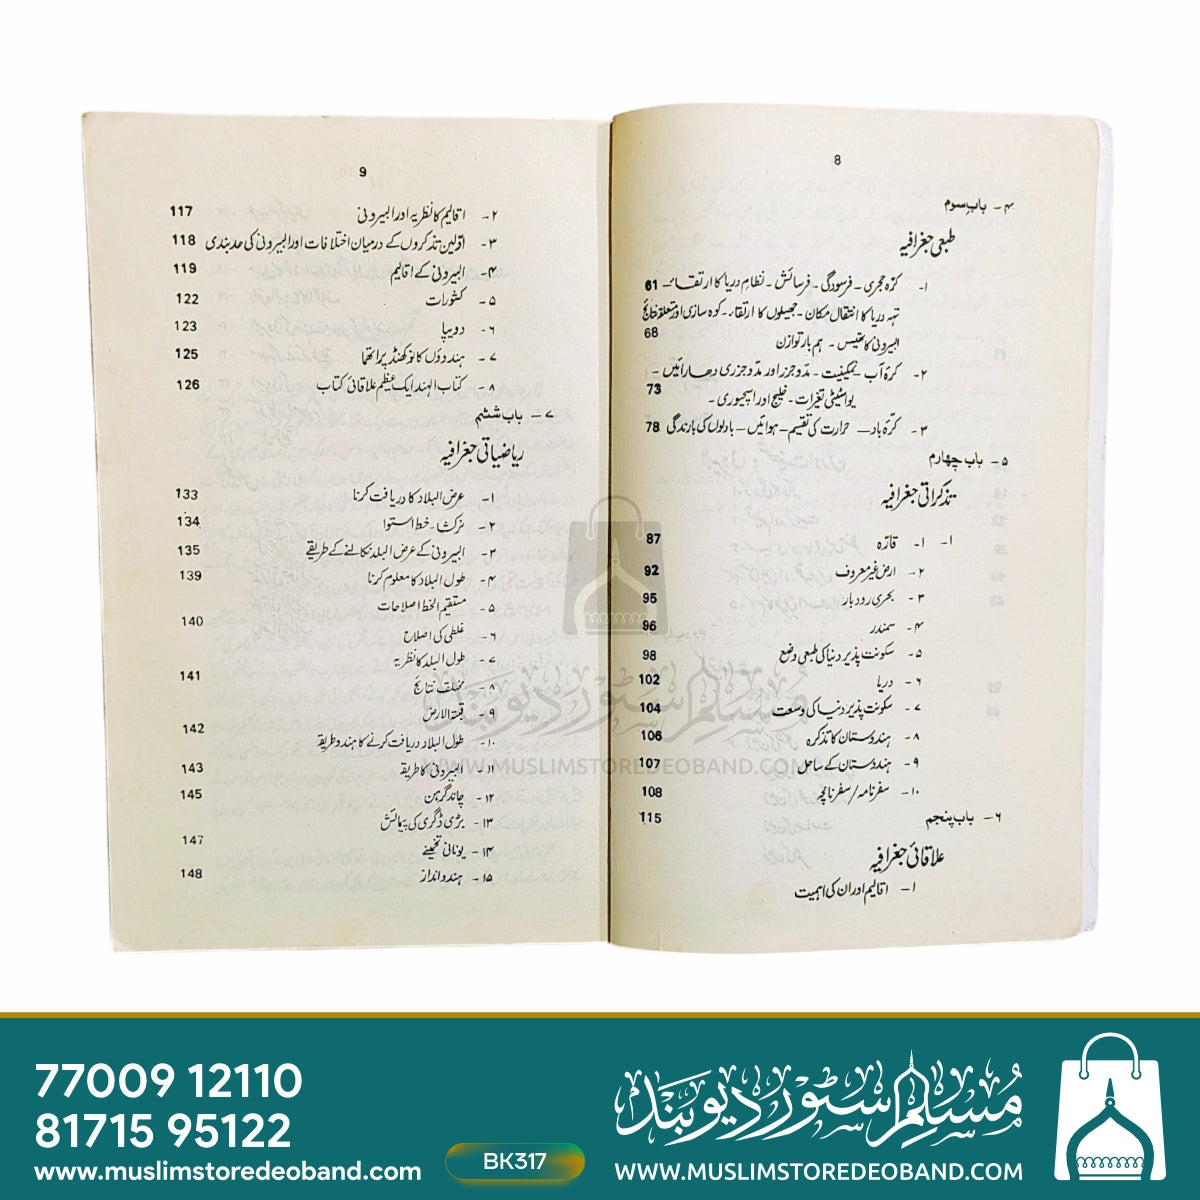 8
۴- باب سوم
طبعی جغرافیہ
۱- کرّہ حجری - فرسودگی - فرسائش - نظام دریا کا ارتقاء - 61
تہہ دریا کا انتقال مکان - جھیلوں کا ارتقاء - کوہ سازی اور متعلقہ نتائج
البیرونی کا تھیسس - ہم بار توازن 68
۲- کرّہ آب - نمکینیت - مد و جزر اور مد و جزری دھارائیں -
یواسٹیٹی تغیرات - خلیج اور اسچیوری - 73
۳- کرّہ باد - حرارت کی تقسیم - ہوائیں - بادلوں کی بارندگی 78
۵- باب چهارم
تذکراتی جغرافیہ
۱- ۱- قارّہ 87
۲- ارض غیر معروف 92
۳- بحری رودبار 95
۴- سمندر 96
۵- سکونت پذیر دنیا کی طبعی وضع 98
۶- دریا 102
۷- سکونت پذیر دنیا کی وسعت 104
۸- ہندوستان کا تذکرہ 106
۹- ہندوستان کے ساحل 107
۱۰- سفرنامہ/سفرنامچہ 108
۶- باب پنجم 115
علاقائی جغرافیہ
۱- اقالیم اور ان کی اہمیت
9
۲- اقالیم کا نظریہ اور البیرونی 117
۳- اوّلین تذکروں کے درمیان اختلافات اور البیرونی کی حد بندی 118
۴- البیرونی کے اقالیم 119
۵- کشورات 122
۶- دویپا 123
۷- ہندوؤں کا نو کھنڈ پراتھما 125
۸- کتاب الہند ایک عظیم علاقائی کتاب 126
۷- باب ششم
ریاضیاتی جغرافیہ
۱- عرض البلاد کا دریافت کرنا 133
۲- نرکشا - خط استوا 134
۳- البیرونی کے عرض البلد نکالنے کے طریقے 135
۴- طول البلاد کا معلوم کرنا 139
۵- مستقیم الخط اصلاحات
۶- غلطی کی اصلاح 140
۷- طول البلد کا نظریہ
۸- مختلف نتائج 141
۹- قبتہ الارض
۱۰- طول البلاد دریافت کرنے کا ہندو طریقہ 142
۱۱- البیرونی کا طریقہ 143
۱۲- چاند گرہن 145
۱۳- بڑی ڈگری کی پیمائش
۱۴- یونانی تخمینے 147
۱۵- ہندو انداز 148
مسلم سٹور دیوبند
WWW.MUSLIMSTOREDEOBAND.COM
77009 12110
81715 95122
www.muslimstoredeoband.com
BK317
مسلم سٹور دیوبند
WWW.MUSLIMSTOREDEOBAND.COM